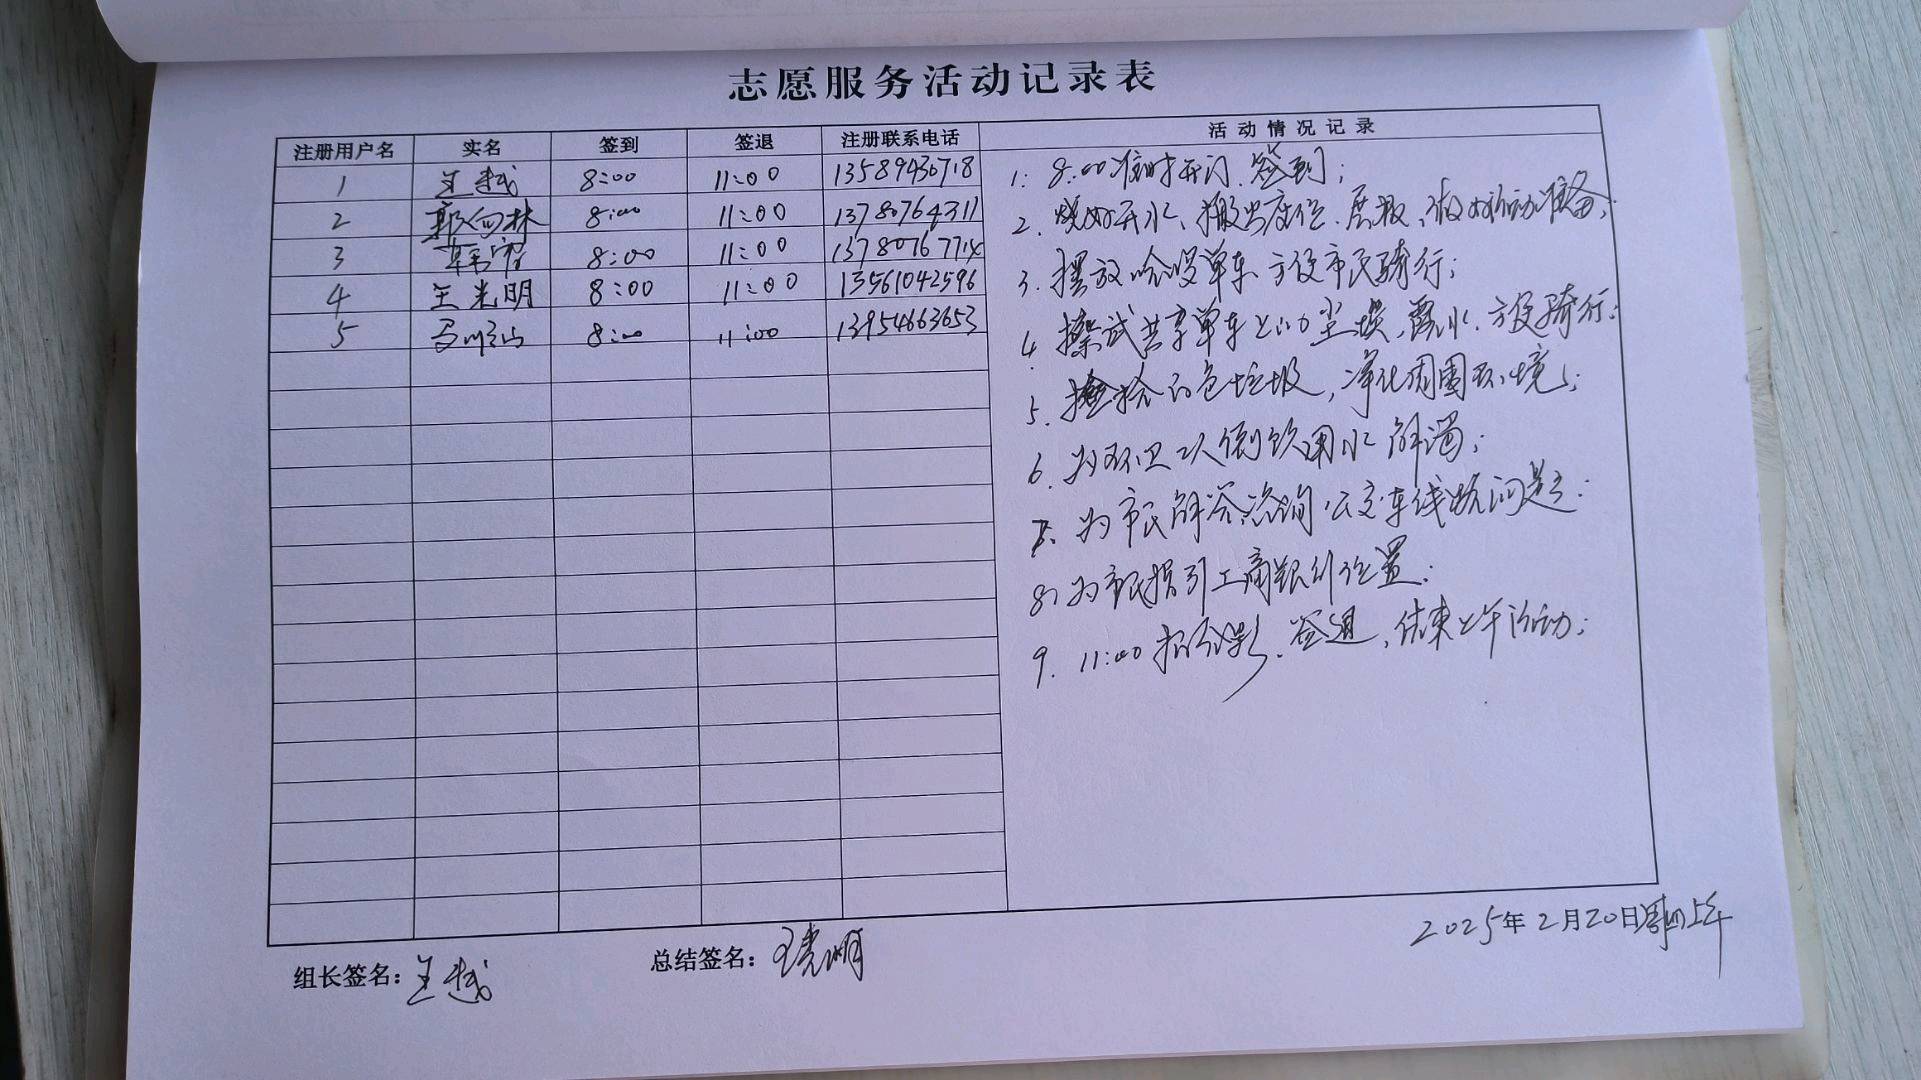 志愿服务活动记录表
注册用户名 实名 签到 签退 注册联系电话 活动情况记录
1 王越 8:00 11:00 13589436718
2 郭向林 8:00 11:00 13780764311
3 韩 8:00 11:00 13780767714
4 王光明 8:00 11:00 13561042596
5 8:00 11:00 13954663653
1. 8:00准时开门、签到;
2. 烧好开水、搬出座位、展板,做好活动准备;
3. 摆放哈啰单车、方便市民骑行;
4. 擦试共享单车上的尘埃、露水、方便骑行;
5. 捡拾白色垃圾,净化周围环境;
6. 为环卫工人倒饮用水解渴;
7. 为市民解答咨询公交车线路问题;
8. 为市民指引工商银行位置.
9. 11:00拍合影、签退,结束上午活动;
2025年2月20日周四上午
组长签名:王越
总结签名:王光明